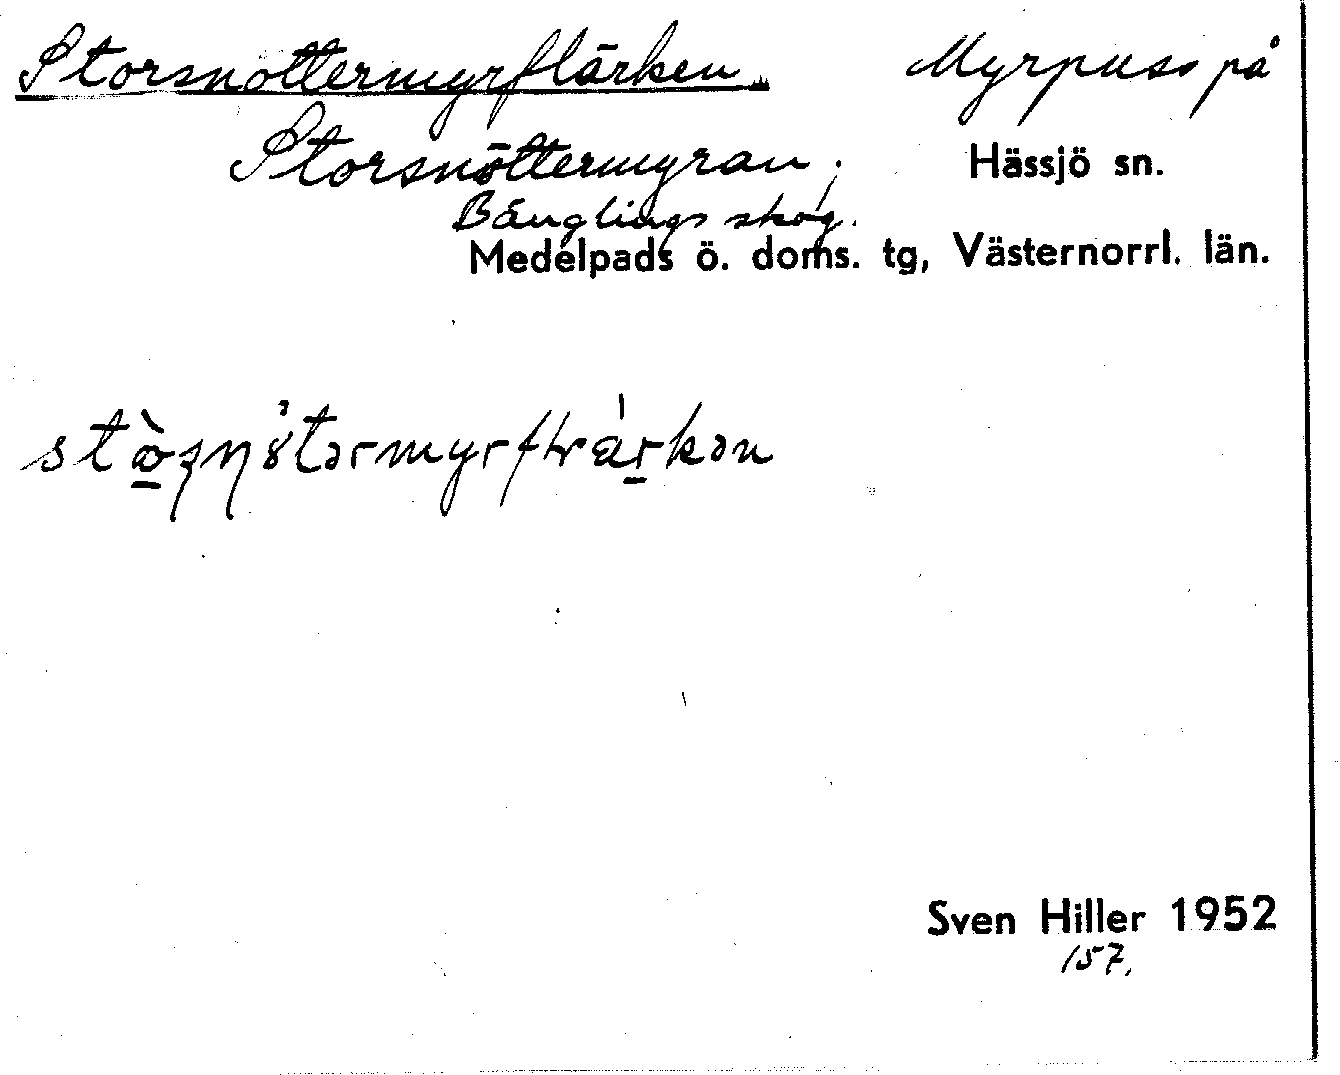 Storsnöttermyrflärken. Myrpuss på
Storsnöttermyran; Hässjö sn.
Bänglings skog.
Medelpads ö. doms. tg, Västernorrl. län.
Sven Hiller 1952
157.